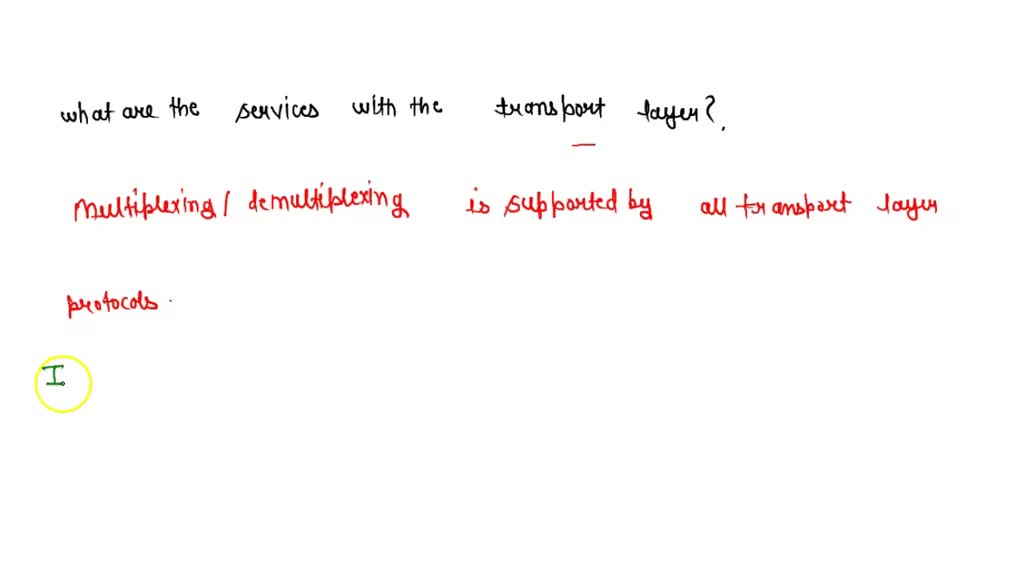 what are the services with the transport layer?.
Multiplexing/ demultiplexing is supported by all transport layer
protocols.
I